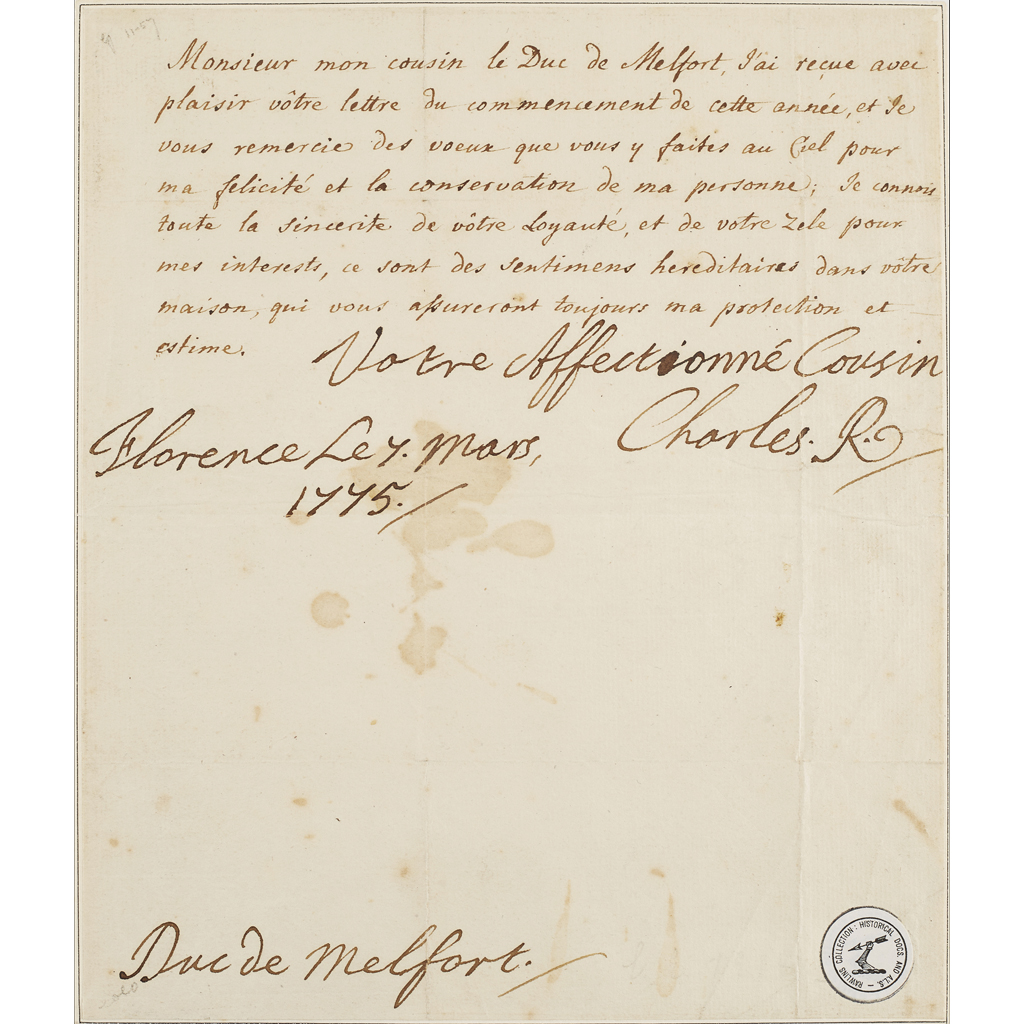 Monsieur mon cousin le Duc de Melfort, J'ai reçue avec
plaisir vôtre lettre du commencement de cette année, et Je
vous remercie des voeux que vous y faites au Ciel pour
ma felicité et la conservation de ma personne; Je connois
toute la sincerite de vôtre Loyauté, et de votre Zele pour
mes interests, ce sont des sentimens hereditaires dans vôtre
maison, qui vous assureront toujours ma protection et
estime.
Votre Affectionné Cousin
Charles. R.
Florence Le 7. Mars,
1775.
Duc de Melfort.
RAWLINS COLLECTION: HISTORICAL DOCS. AND A.L.S.